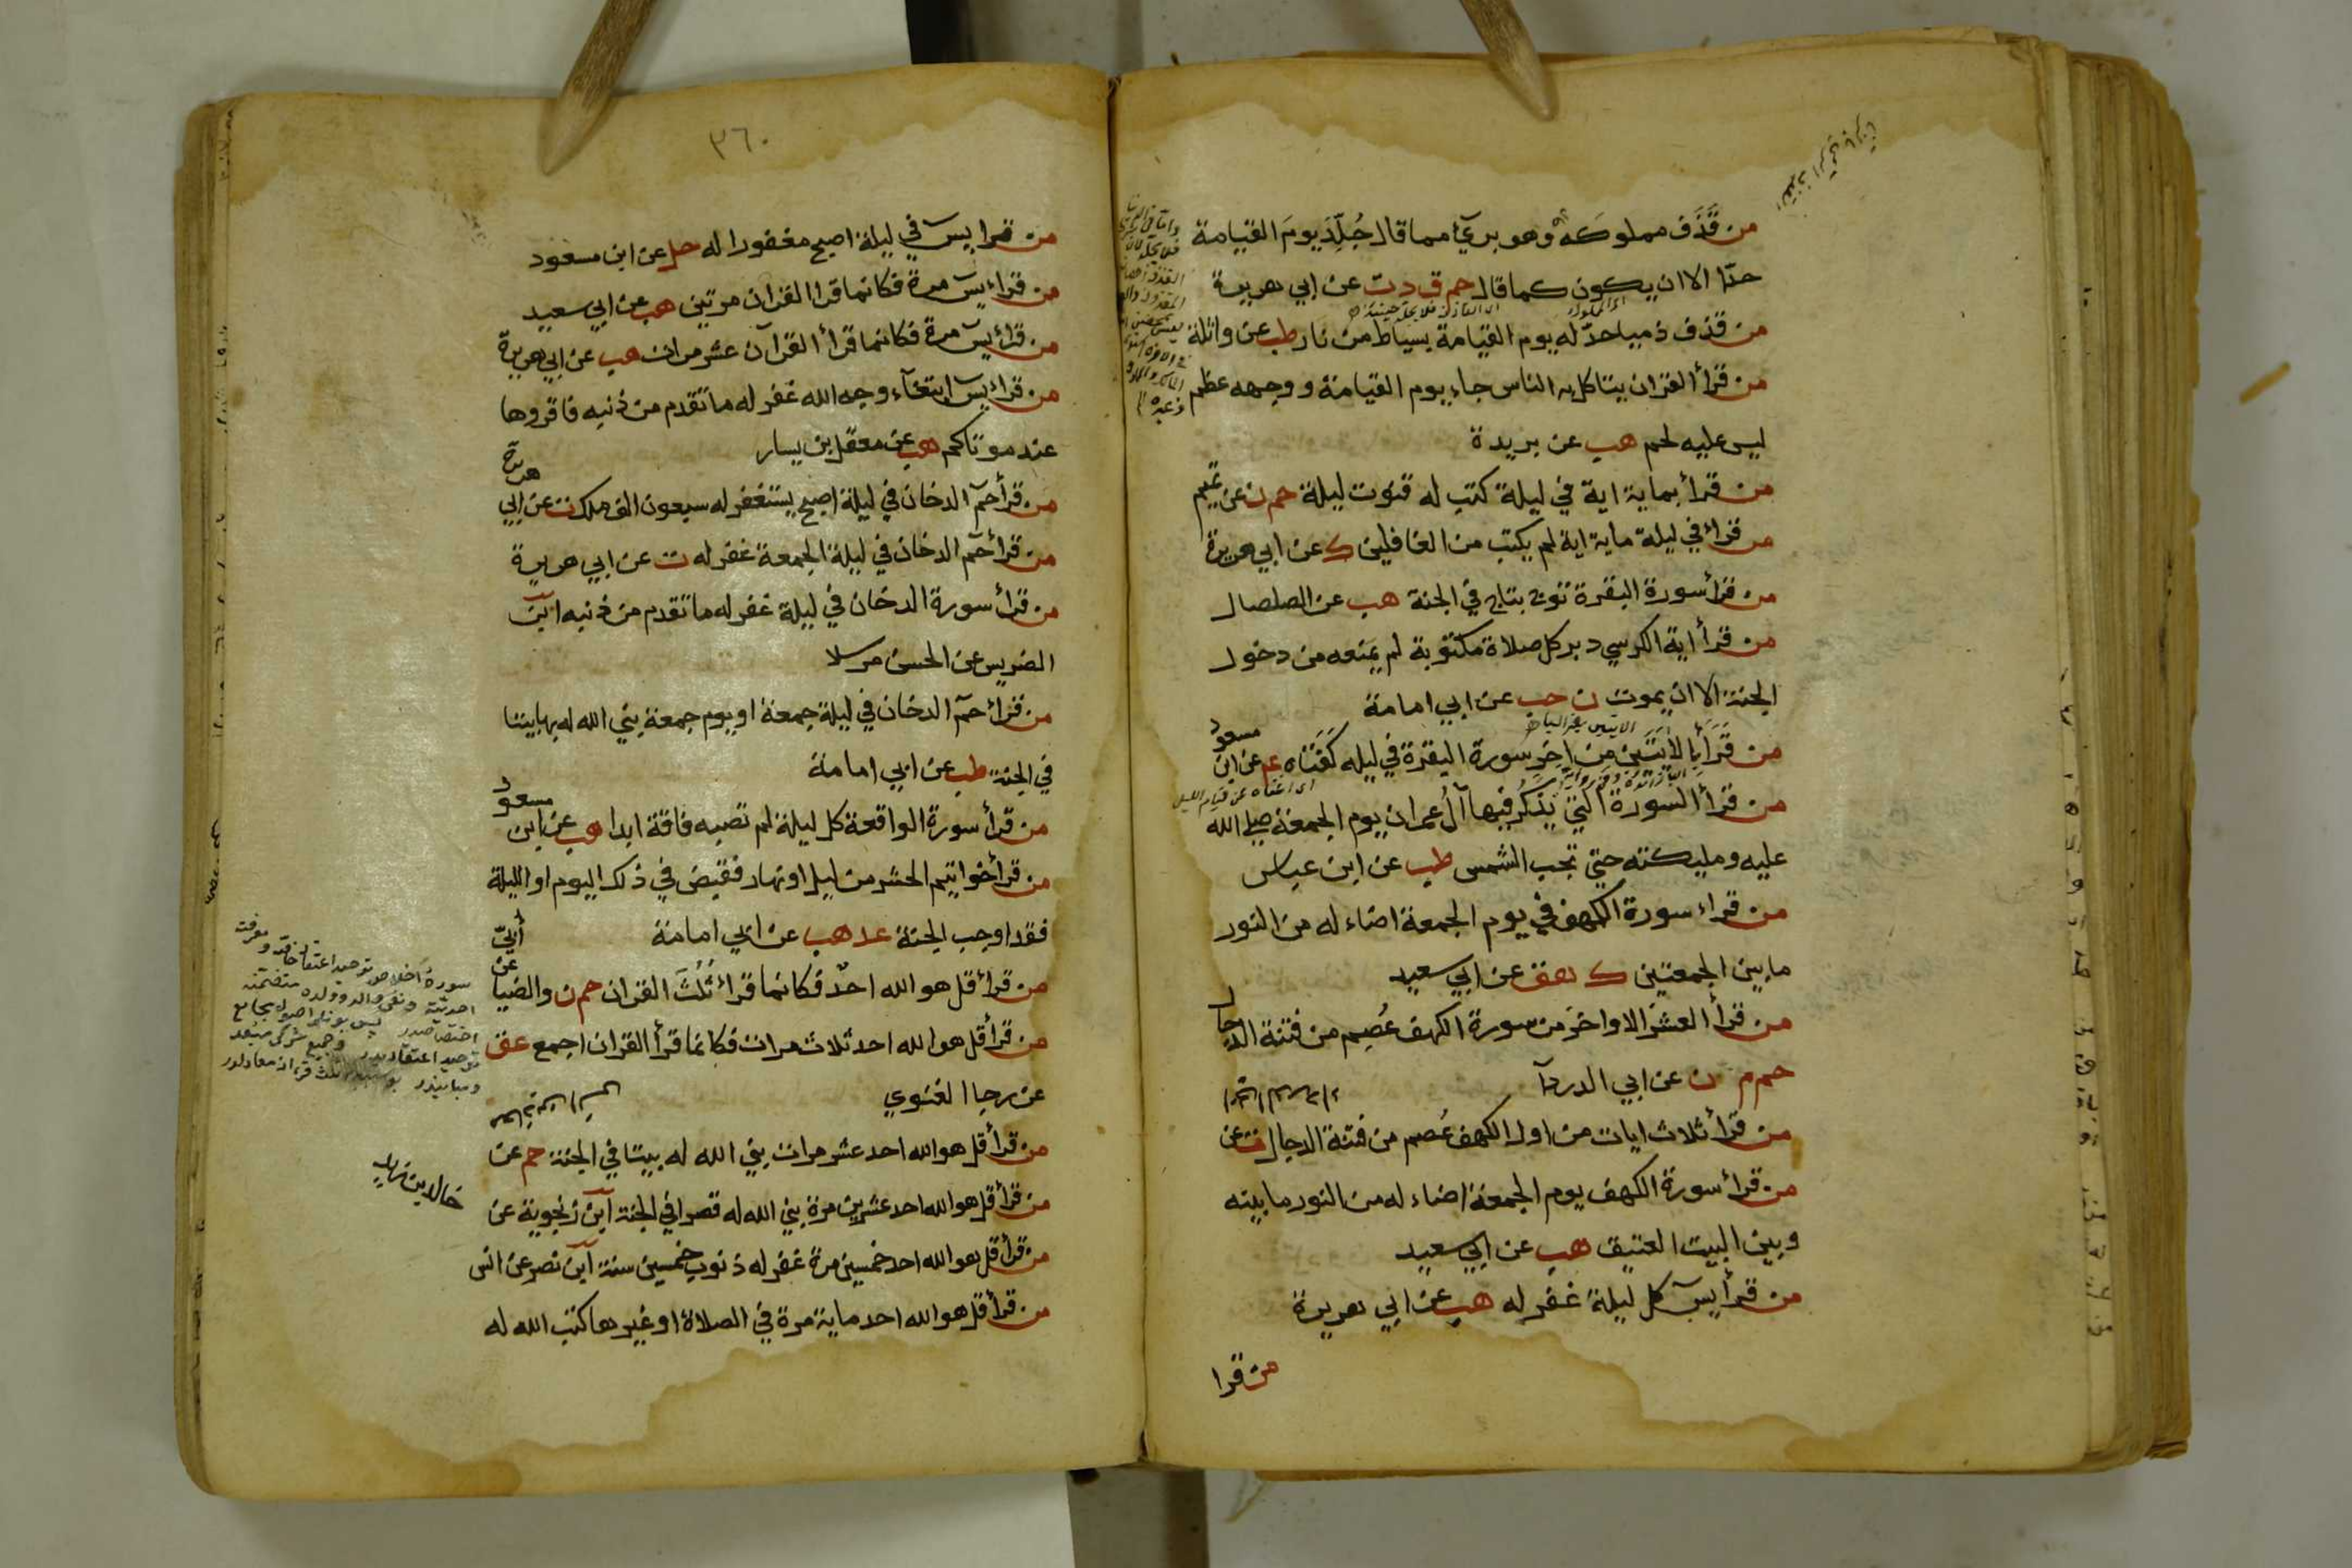 من قَذَف مملوكَه وهو بريٓء مما قال جُلِّدَ يومَ القيامة
حدّا الا ان يكون كما قال حم ق د ت عن ابي هريرة
من قذف ذميا حدّ له يوم القيامة بسياط من نار طب عن واثلة
من قرأ القران يتاكل به الناس جاء يوم القيامة ووجهه عظم
ليس عليه لحم هب عن بريدة
من قرأ بماية اية في ليلة كتب له قنوت ليلة حم ن عن تميم
من قراء في ليلة ماية اية لم يكتب من الغافلين ك عن ابي هريرة
من قرأ سورة البقرة توج بتاج في الجنة هب عن الصلصال
من قرأ اية الكرسي دبر كل صلاة مكتوبة لم يمنعه من دخول
الجنة الا ان يموت ن حب عن ابي امامة
من قَرَأَ بِالأيَتَين من اخِر سورة البقرة في ليله كَفَتَاه عم عن ابن مسعود
من قرأ السورة التي يُذكر فيها آلُ عمران يوم الجمعة صلى الله
عليه ومليكته حتى تجب الشمس طب عن ابن عباس
من قراء سورة الكهف في يوم الجمعة اضاء له من النور
ما بين الجمعتين ك هق عن ابي سعيد
من قرأ العشر الاواخرَ من سورة الكهف عُصِم من فتنة الدجال
حم م ن عن ابي الدردآ
من قرأ ثلاث ايات من اول الكهف عُصم من فتنة الدجال ت عن
من قرأ سورة الكهف يوم الجمعة اضاء له من النور ما بينه
وبين البيت العتيق هب عن ابي سعيد
من قرأ يسٓ كل ليلة غفر له هب عن ابي هريرة
من قرا
٣٦٠
من قرا يسٓ في ليلة اصبح مغفورا له حل عن ابن مسعود
من قراء يسٓ مرة فكانما قرا القران مرتين هب عن ابي سعيد
من قراء يسٓ مرة فكانما قرأ القرآن عشر مرات هب عن ابي هريرة
من قراء يسٓ ابتغآء وجه الله غفر له ما تقدم من ذنبه فاقروها
عند موتاكم هب عن معقل بن يسار
من قرأ حمٓ الدخان في ليلة اصبح يستغفر له سبعون الف ملك ت عن ابي هريرة
من قرأ حمٓ الدخان في ليلة الجمعة غفر له ت عن ابي هريرة
من قرأ سورة الدخان في ليلة غفر له ما تقدم من ذنبه ابن
الضريس عن الحسن مرسلا
من قراء حمٓ الدخان في ليلة جمعة او يوم جمعة بني الله له بها بيتا
في الجنة طب عن ابي امامة
من قرأ سورة الواقعة كل ليلة لم تصبه فاقة ابدا هب عن ابن مسعود
من قرأ خواتيم الحشر من ليل او نهار فقبض في ذلك اليوم او الليلة
فقد اوجب الجنة عد هب عن ابي امامة
من قرأ قل هو الله احدٌ فكانما قراء ثُلُثَ القران حم ن والضيا عن أبيّ
من قرأ قل هو الله احد ثلاث مرات فكانما قرأ القران اجمع عق
عن رجا الغنوي
من قرأ قل هو الله احد عشر مرات بني الله له بيتا في الجنة حم عن
من قرأ قل هو الله احد عشرين مرة بني الله له قصرا في الجنة ابن زنجوية عن
خالد بن زيد
من قرأ قل هو الله احد خمسين مرة غفر له ذنوب خمسين سنة ابن نصر عن انس
من قرأ قل هو الله احد ماية مرة في الصلاة او غيرها كتب الله له